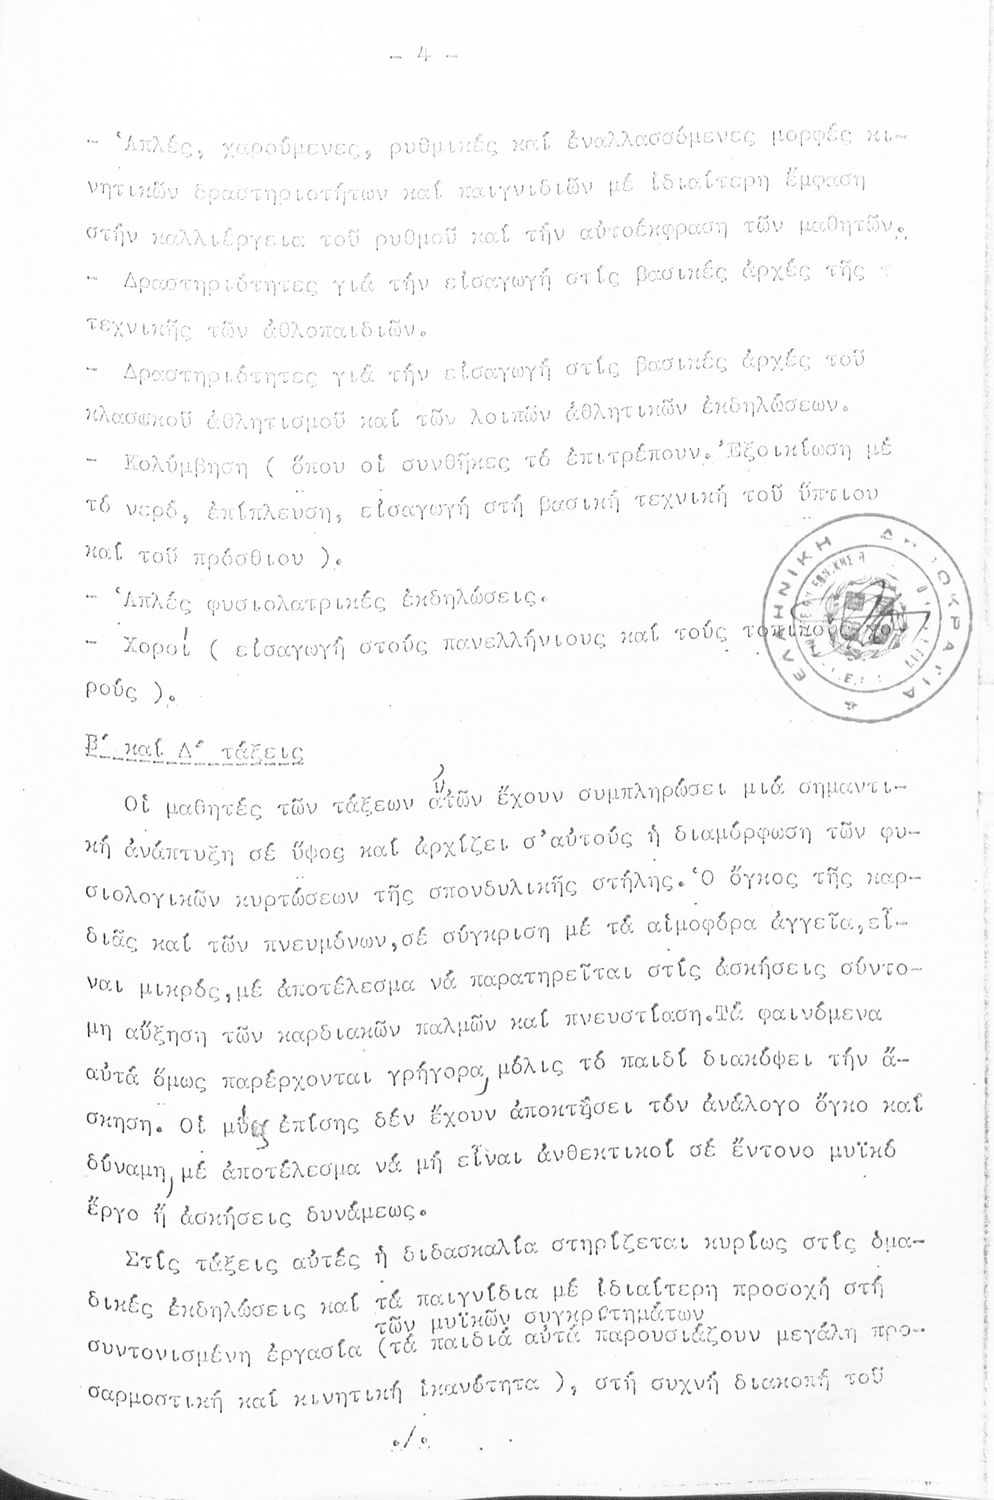 - 4 -
- Ἁπλές, χαρούμενες, ρυθμικές καί ἐναλλασσόμενες μορφές κι-
νητικῶν δραστηριοτήτων καί παιγνιδιῶν μέ ἰδιαίτερη ἔμφαση
στήν καλλιέργεια τοῦ ρυθμοῦ καί τήν αὐτοέκφραση τῶν μαθητῶν.
- Δραστηριότητες γιά τήν εἰσαγωγή στίς βασικές ἀρχές τῆς τ
τεχνικῆς τῶν ἀθλοπαιδιῶν.
- Δραστηριότητες γιά τήν εἰσαγωγή στίς βασικές ἀρχές τοῦ
κλασικοῦ ἀθλητισμοῦ καί τῶν λοιπῶν ἀθλητικῶν ἐκδηλώσεων.
- Κολύμβηση ( ὅπου οἱ συνθῆκες τό ἐπιτρέπουν. Ἐξοικίωση μέ
τό νερό, ἐπίπλευση, εἰσαγωγή στή βασική τεχνική τοῦ ὕπτιου
καί τοῦ πρόσθιου ).
- Ἁπλές φυσιολατρικές ἐκδηλώσεις.
- Χοροί ( εἰσαγωγή στούς πανελλήνιους καί τούς τοπικούς χο-
ρούς ).
ΕΛΛΗΝΙΚΗ ΔΗΜΟΚΡΑΤΙΑ
Β΄ καί Δ΄ τάξεις
Οἱ μαθητές τῶν τάξεων αὐτῶν ἔχουν συμπληρώσει μιά σημαντι-
κή ἀνάπτυξη σέ ὕψος καί ἀρχίζει σ'αὐτούς ἡ διαμόρφωση τῶν φυ-
σιολογικῶν κυρτώσεων τῆς σπονδυλικῆς στήλης. Ὁ ὄγκος τῆς καρ-
διᾶς καί τῶν πνευμόνων,σέ σύγκριση μέ τά αἱμοφόρα ἀγγεῖα,εἶ-
ναι μικρός,μέ ἀποτέλεσμα νά παρατηρεῖται στίς ἀσκήσεις σύντο-
μη αὔξηση τῶν καρδιακῶν παλμῶν καί πνευστίαση.Τά φαινόμενα
αὐτά ὅμως παρέρχονται γρήγορα, μόλις τό παιδί διακόψει τήν ἄ-
σκηση. Οἱ μύες ἐπίσης δέν ἔχουν ἀποκτήσει τόν ἀνάλογο ὄγκο καί
δύναμη, μέ ἀποτέλεσμα νά μή εἶναι ἀνθεκτικοί σέ ἔντονο μυϊκό
ἔργο ἤ ἀσκήσεις δυνάμεως.
Στίς τάξεις αὐτές ἡ διδασκαλία στηρίζεται κυρίως στίς ὁμα-
δικές ἐκδηλώσεις καί τά παιγνίδια μέ ἰδιαίτερη προσοχή στή
τῶν μυϊκῶν συγκροτημάτων
συντονισμένη ἐργασία (τά παιδιά αὐτά παρουσιάζουν μεγάλη προ-
σαρμοστική καί κινητική ἱκανότητα ), στή συχνή διακοπή τοῦ
./.